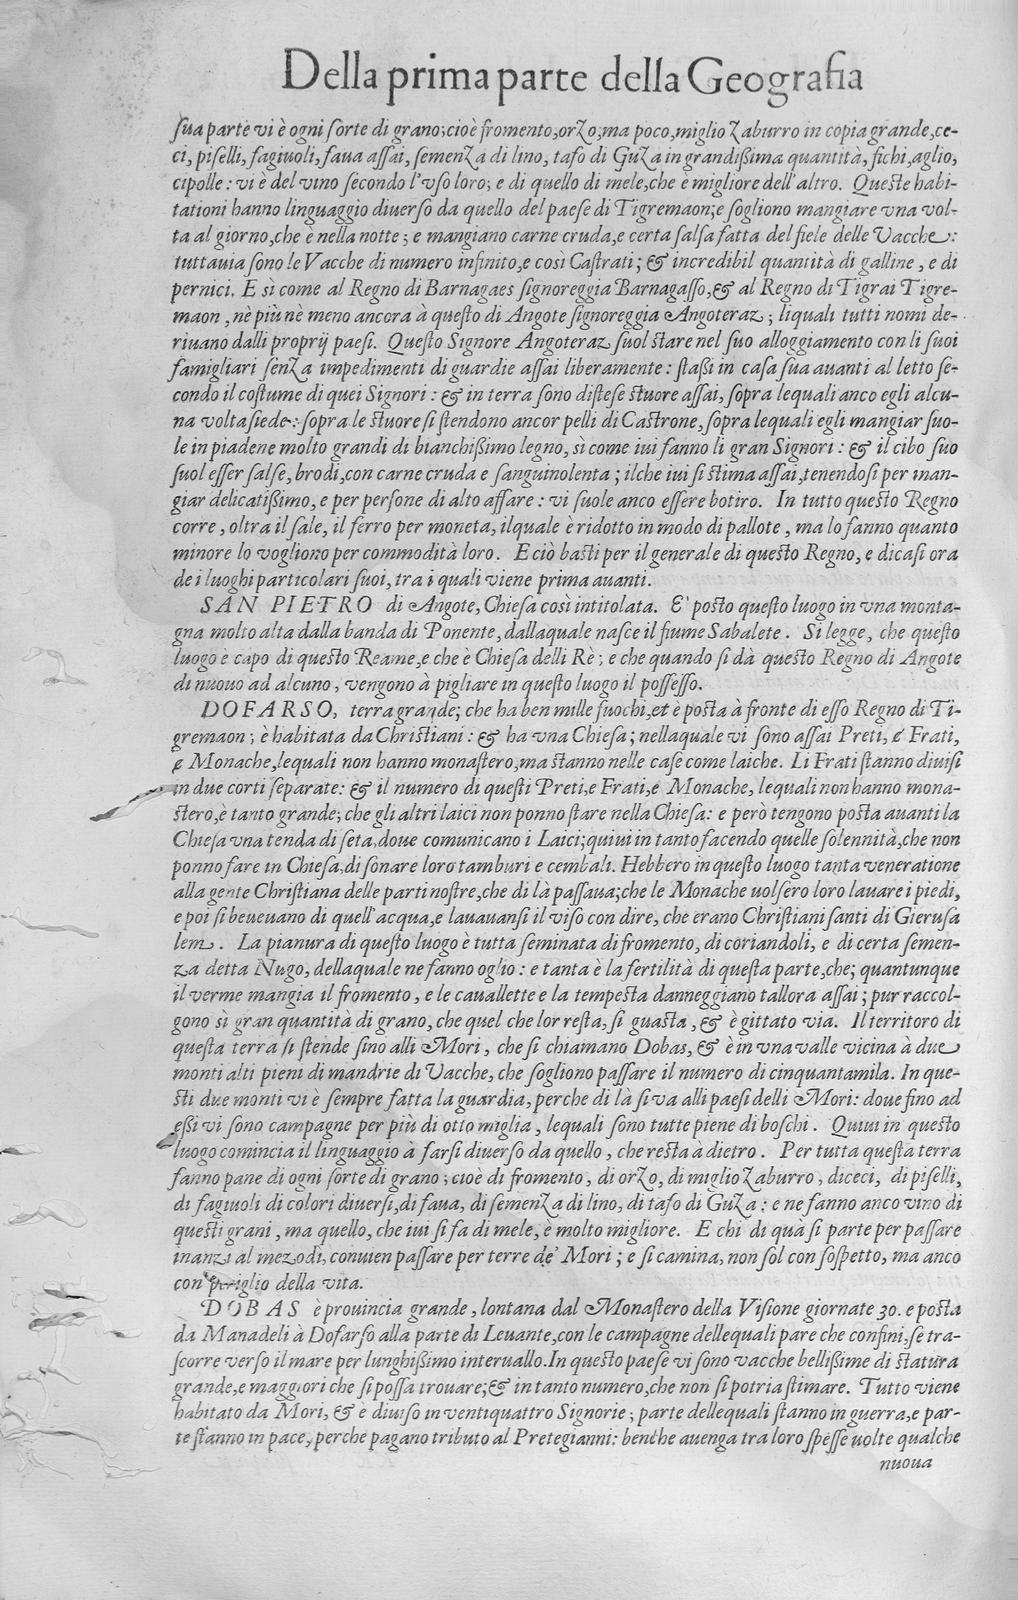 Della prima parte della Geografia
sua parte vi è ogni sorte di grano; cioè fromento, orzo; ma poco, miglio Zaburro in copia grande, ce-
ci, piselli, fagiuoli, faua assai, semenza di lino, tafo di Guza in grandissima quantità, fichi, aglio,
cipolle: vi è del vino secondo l'vso loro; e di quello di mele, che è migliore dell'altro. Queste habi-
tationi hanno linguaggio diuerso da quello del paese di Tigremaon; e sogliono mangiare vna vol-
ta al giorno, che è nella notte; e mangiano carne cruda, e certa salsa fatta del fiele delle Vacche:
tuttauia sono le Vacche di numero infinito, e così Castrati; & incredibil quantità di galline, e di
pernici. E sì come al Regno di Barnagaes signoreggia Barnagasso, & al Regno di Tigrai Tigre-
maon, nè più nè meno ancora à questo di Angote signoreggia Angoteraz; liquali tutti nomi de-
riuano dalli proprij paesi. Questo Signore Angoteraz suol stare nel suo alloggiamento con li suoi
famigliari senza impedimenti di guardie assai liberamente: stassi in casa sua auanti al letto se-
condo il costume di quei Signori: & in terra sono distese stuore assai, sopra lequali anco egli alcu-
na volta siede: sopra le stuore si stendono ancor pelli di Castrone, sopra lequali egli mangiar suo-
le in piadene molto grandi di bianchissimo legno, sì come iui fanno li gran Signori: & il cibo suo
suol esser salse, brodi, con carne cruda e sanguinolenta; ilche iui si stima assai, tenendosi per man-
giar delicatissimo, e per persone di alto affare: vi suole anco essere botiro. In tutto questo Regno
corre, oltra il sale, il ferro per moneta, ilquale è ridotto in modo di pallote, ma lo fanno quanto
minore lo vogliono per commodità loro. E ciò basti per il generale di questo Regno, e dicasi ora
de i luoghi particolari suoi, tra i quali viene prima auanti.
SAN PIETRO di Angote, Chiesa così intitolata. E' posto questo luogo in vna monta-
gna molto alta dalla banda di Ponente, dallaquale nasce il fiume Sabalete. Si legge, che questo
luogo è capo di questo Reame, e che è Chiesa delli Rè; e che quando si dà questo Regno di Angote
di nuouo ad alcuno, vengono à pigliare in questo luogo il possesso.
DOFARSO, terra grande; che ha ben mille fuochi, et è posta à fronte di esso Regno di Ti-
gremaon; è habitata da Christiani: & ha vna Chiesa; nellaquale vi sono assai Preti, e Frati,
e Monache, lequali non hanno monastero, ma stanno nelle case come laiche. Li Frati stanno diuisi
in due corti separate: & il numero di questi Preti, e Frati, e Monache, lequali non hanno mona-
stero, è tanto grande; che gli altri laici non ponno stare nella Chiesa: e però tengono posta auanti la
Chiesa vna tenda di seta, doue comunicano i Laici; quiui in tanto facendo quelle solennità, che non
ponno fare in Chiesa, di sonare loro tamburi e cembali. Hebbero in questo luogo tanta veneratione
alla gente Christiana delle parti nostre, che di là passaua; che le Monache uolsero loro lauare i piedi,
e poi si beueuano di quell'acqua, e lauauansi il viso con dire, che erano Christiani santi di Gierusa
lem. La pianura di questo luogo è tutta seminata di fromento, di coriandoli, e di certa semen-
za detta Nugo, dellaquale ne fanno oglio: e tanta è la fertilità di questa parte, che; quantunque
il verme mangia il fromento, e le cauallette e la tempesta danneggiano tallora assai; pur raccol-
gono sì gran quantità di grano, che quel che lor resta, si guasta, & è gittato via. Il territoro di
questa terra si stende sino alli Mori, che si chiamano Dobas, & è in vna valle vicina à due
monti alti pieni di mandrie di Vacche, che sogliono passare il numero di cinquantamila. In que-
sti due monti vi è sempre fatta la guardia, perche di là si va alli paesi delli Mori: doue fino ad
essi vi sono campagne per più di otto miglia, lequali sono tutte piene di boschi. Quiui in questo
luogo comincia il linguaggio à farsi diuerso da quello, che resta à dietro. Per tutta questa terra
fanno pane di ogni sorte di grano; cioè di fromento, di orzo, di miglio Zaburro, di ceci, di piselli,
di fagiuoli di colori diuersi, di faua, di semenza di lino, di tafo di Guza: e ne fanno anco vino di
questi grani, ma quello, che iui si fa di mele, è molto migliore. E chi di quà si parte per passare
inanzi al mezodì, conuien passare per terre de' Mori; e si camina, non sol con sospetto, ma anco
con periglio della vita.
DOBAS è prouincia grande, lontana dal Monastero della Visione giornate 30. e posta
da Manadeli à Dofarso alla parte di Leuante, con le campagne dellequali pare che confini, se tra-
scorre verso il mare per lunghissimo interuallo. In questo paese vi sono vacche bellissime di statura
grande, e maggiori che si possa trouare; & in tanto numero, che non si potria stimare. Tutto viene
habitato da Mori, & è diuiso in ventiquattro Signorie; parte dellequali stanno in guerra, e par-
te stanno in pace, perche pagano tributo al Pretegianni: benche auenga tra loro spesse uolte qualche
nuoua